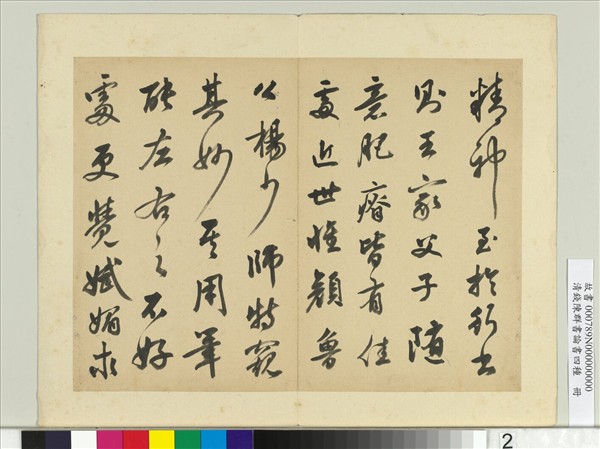 精神至於行書
則王家父子隨
意肥瘠皆有佳
處近世惟顏魯
公楊少師特窺
其妙其用筆
能左右之不好
處更覺娬媚求
故書000789N000000000
清錢陳群書論書四種 冊
2